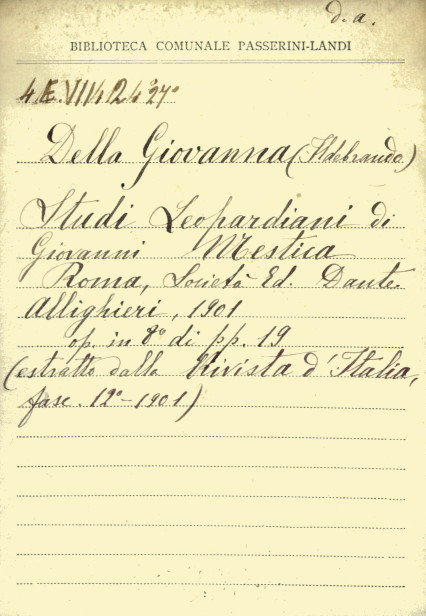 d. a.
BIBLIOTECA COMUNALE PASSERINI-LANDI
Della Giovanna (Ildebrando)
Studi Leopardiani di
Giovanni Mestica
Roma, Società Ed. Dante
Allighieri, 1901
op. in 8° di pp. 19
(estratto dalla Rivista d'Italia,
fasc. 12° - 1901)